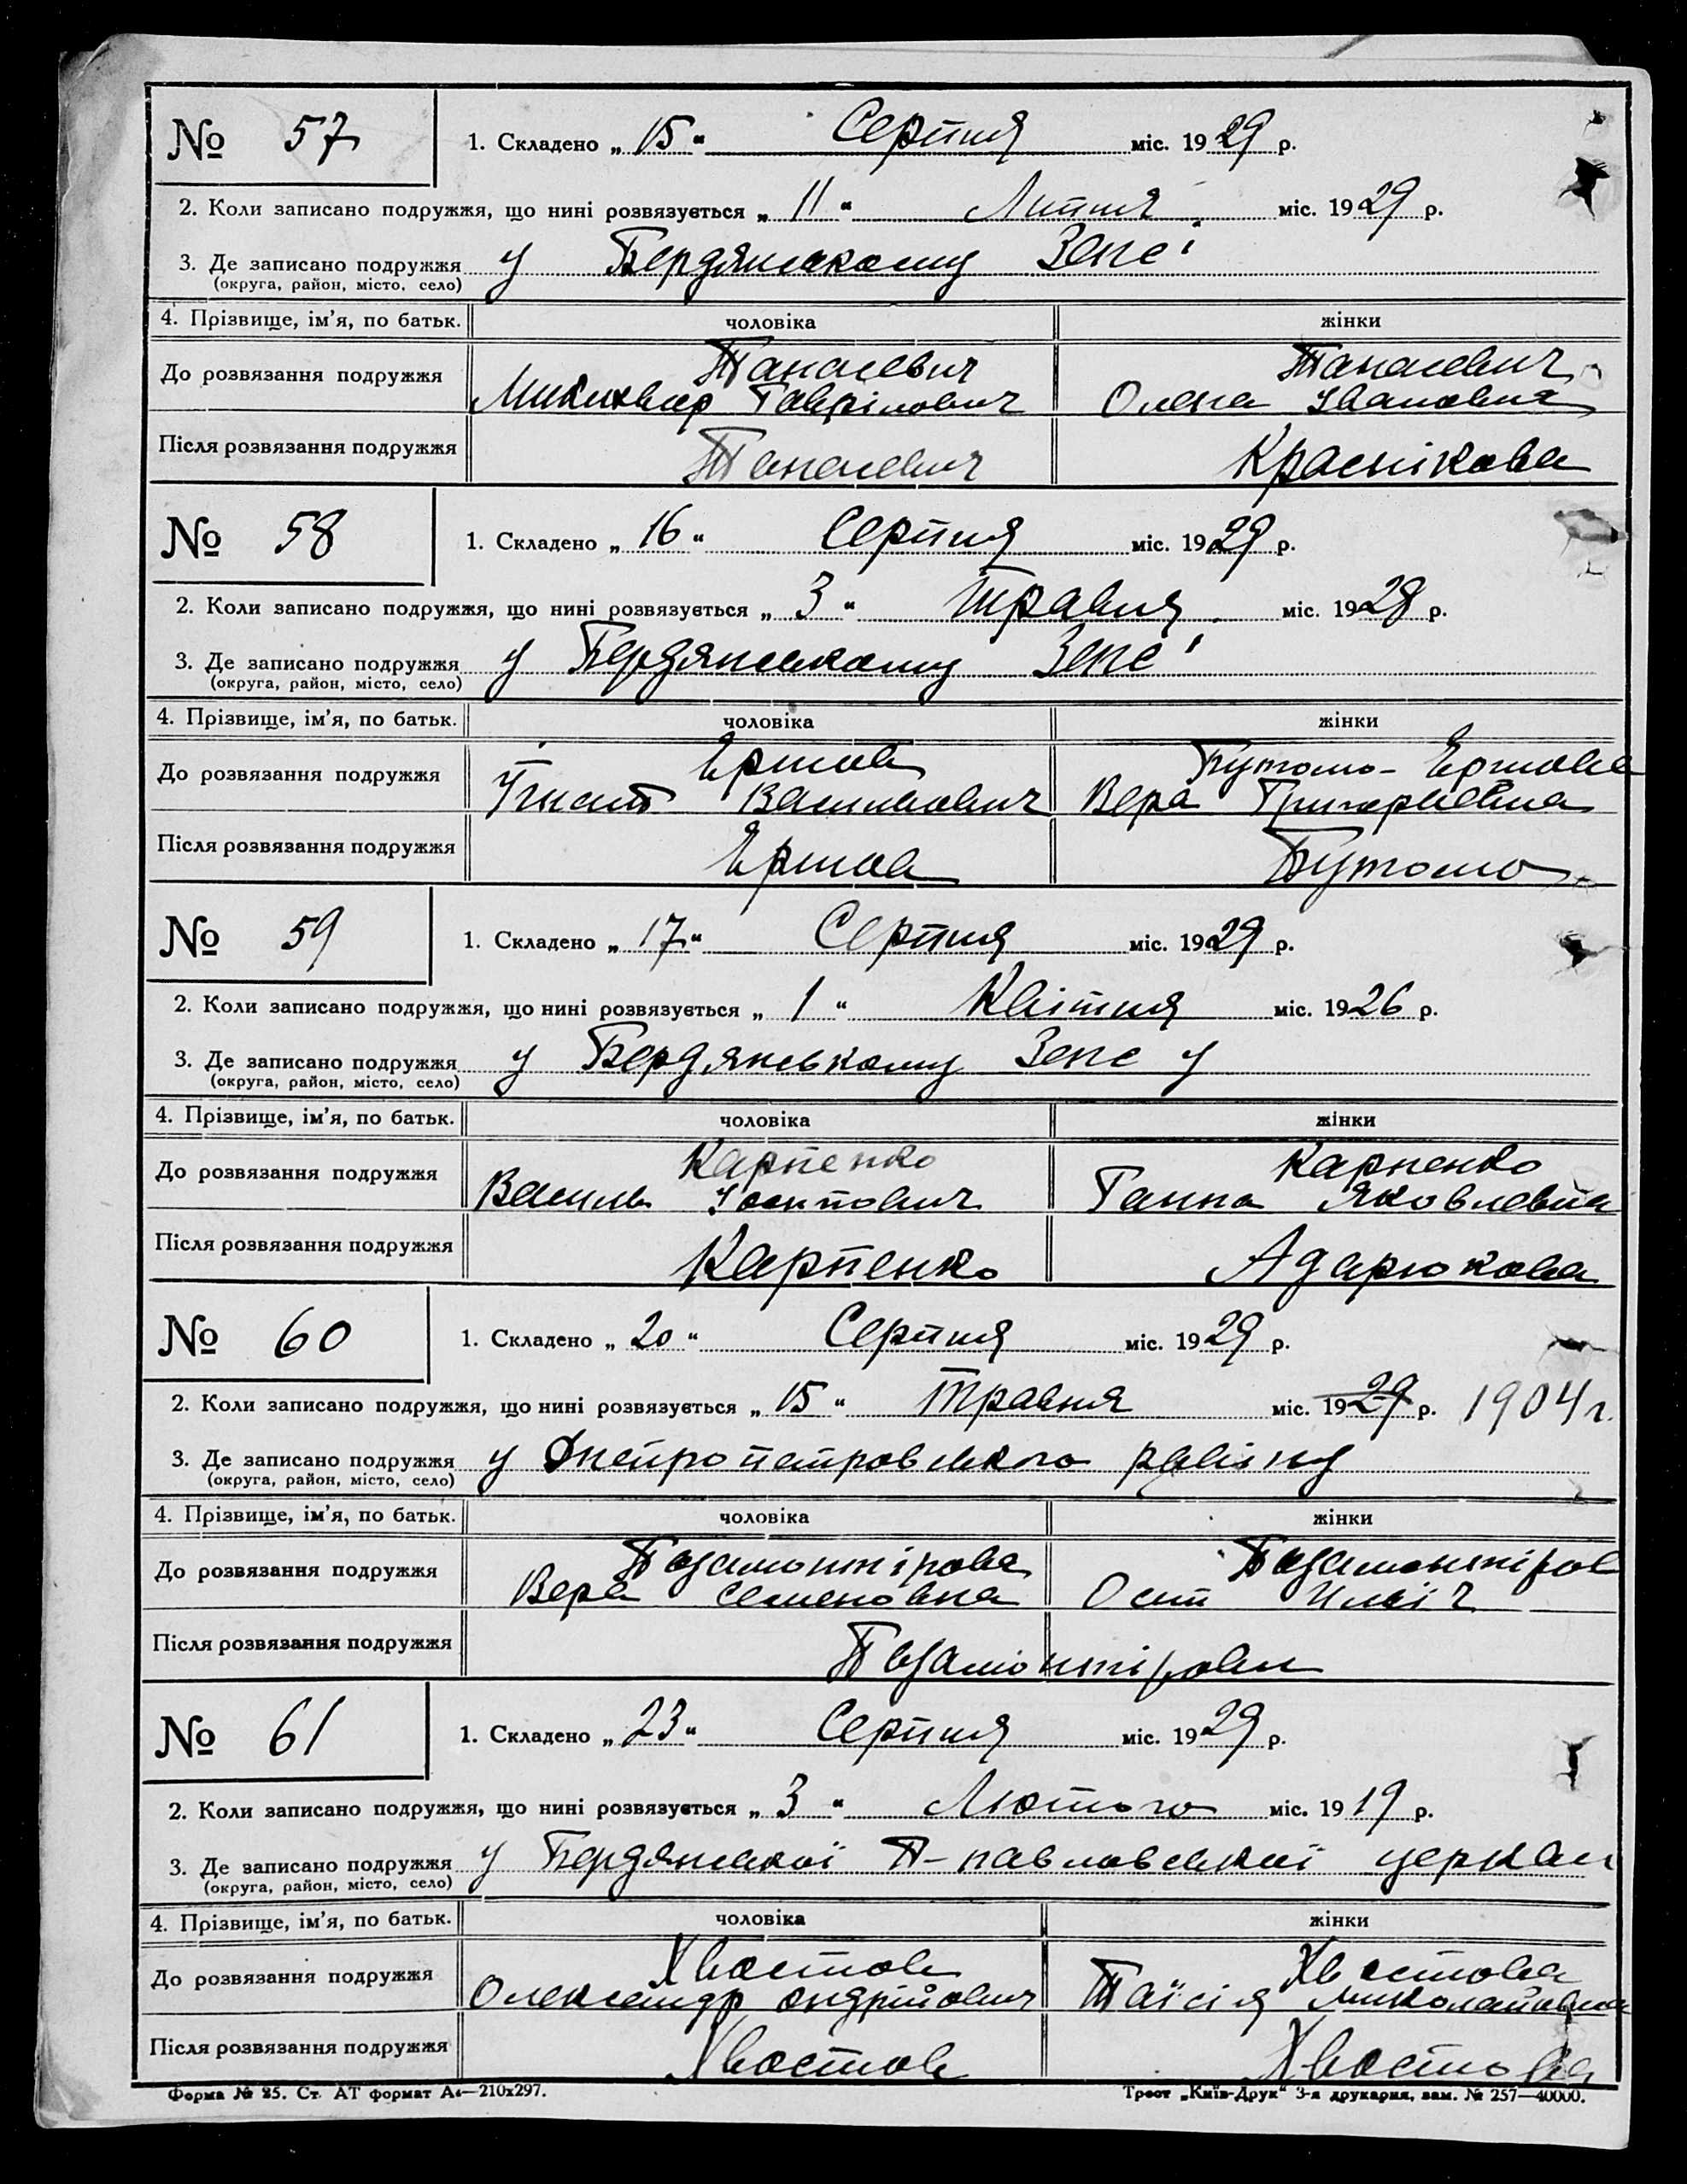 № 57 1. Складено „ 15 “ Серпня міс. 1929 р.
2. Коли записано подружжя, що нині розвязується „ 11 “ Липня міс. 1929 р.
3. Де записано подружжя у Бердянському Загсі
(округа, район, місто, село)
4. Прізвище, ім’я, по батьк. чоловіка жінки
Танасевич Танасевич
До розвязання подружжя
Гаврілович Олена Івановна
Після розвязання подружжя Танасевич Краснікова
№ 58 1. Складено „ 16 “ Серпня міс. 1929 р.
2. Коли записано подружжя, що нині розвязується „ 3 “ Травня міс. 1928 р.
3. Де записано подружжя у Бердянському Загсі
(округа, район, місто, село)
4. Прізвище, ім’я, по батьк. чоловіка жінки
Ершов Бутомо-Ершова
До розвязання подружжя
Ігнат Васильович Вера Григориевна
Після розвязання подружжя Ершов Бутомо
№ 59 1. Складено „ 17 “ Серпня міс. 1929 р.
2. Коли записано подружжя, що нині розвязується „ 1 “ Квітня міс. 1926 р.
3. Де записано подружжя у Бердянському Загсу
(округа, район, місто, село)
4. Прізвище, ім’я, по батьк. чоловіка жінки
Карпенко Карпенко
До розвязання подружжя
Василь Іосипович Ганна Яковлевна
Після розвязання подружжя Карпенко Адарюкова
№ 60 1. Складено „ 20 “ Серпня міс. 1929 р.
2. Коли записано подружжя, що нині розвязується „ 15 “ Травня міс. 1929 р. 1904 г.
3. Де записано подружжя у Днепропетровського
(округа, район, місто, село)
4. Прізвище, ім’я, по батьк. чоловіка жінки
До розвязання подружжя
Вера Семеновна Осип Ильіч
Після розвязання подружжя
№ 61 1. Складено „ 23 “ Серпня міс. 1929 р.
2. Коли записано подружжя, що нині розвязується „ 3 “ Лютого міс. 1919 р.
3. Де записано подружжя у Бердянської П-павловської церкви
(округа, район, місто, село)
4. Прізвище, ім’я, по батьк. чоловіка жінки
Хвостов Хвостова
До розвязання подружжя
Олександр Андрійович Таїсія Миколаївна
Після розвязання подружжя Хвостов Хвостова
Форма № 25. Ст. АТ формат А₄—210х297. Трест „Київ-Друк“ 3-я друкарня, зам. № 257—40000.